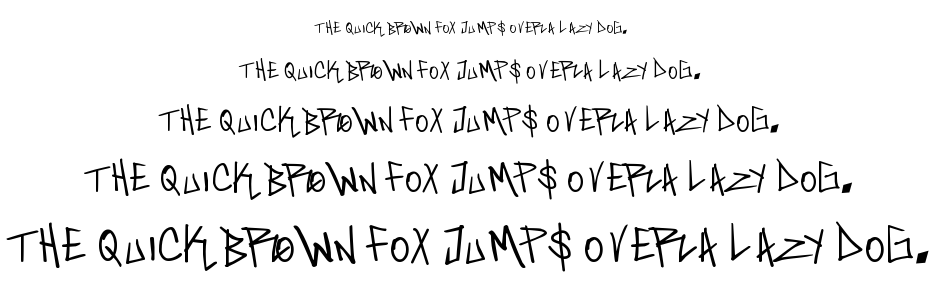 THE QUICK BROWN FOX JUMP$ OVER A LAZY DOG.
THE QUICK BROWN FOX JUMP$ OVER A LAZY DOG.
THE QUICK BROWN FOX JUMP$ OVER A LAZY DOG.
THE QUICK BROWN FOX JUMP$ OVER A LAZY DOG.
THE QUICK BROWN FOX JUMP$ OVER A LAZY DOG.